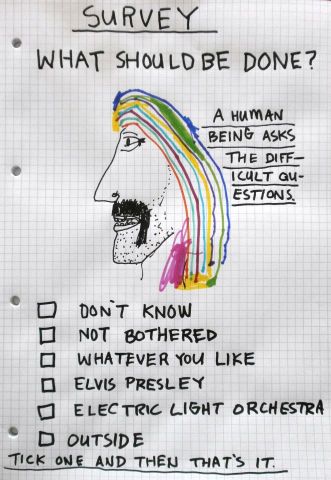 SURVEY
WHAT SHOULD BE DONE?
A HUMAN
BEING ASKS
THE DIFF-
ICULT QU-
ESTIONS.
DON'T KNOW
NOT BOTHERED
WHATEVER YOU LIKE
ELVIS PRESLEY
ELECTRIC LIGHT ORCHESTRA
OUTSIDE
TICK ONE AND THEN THAT'S IT.